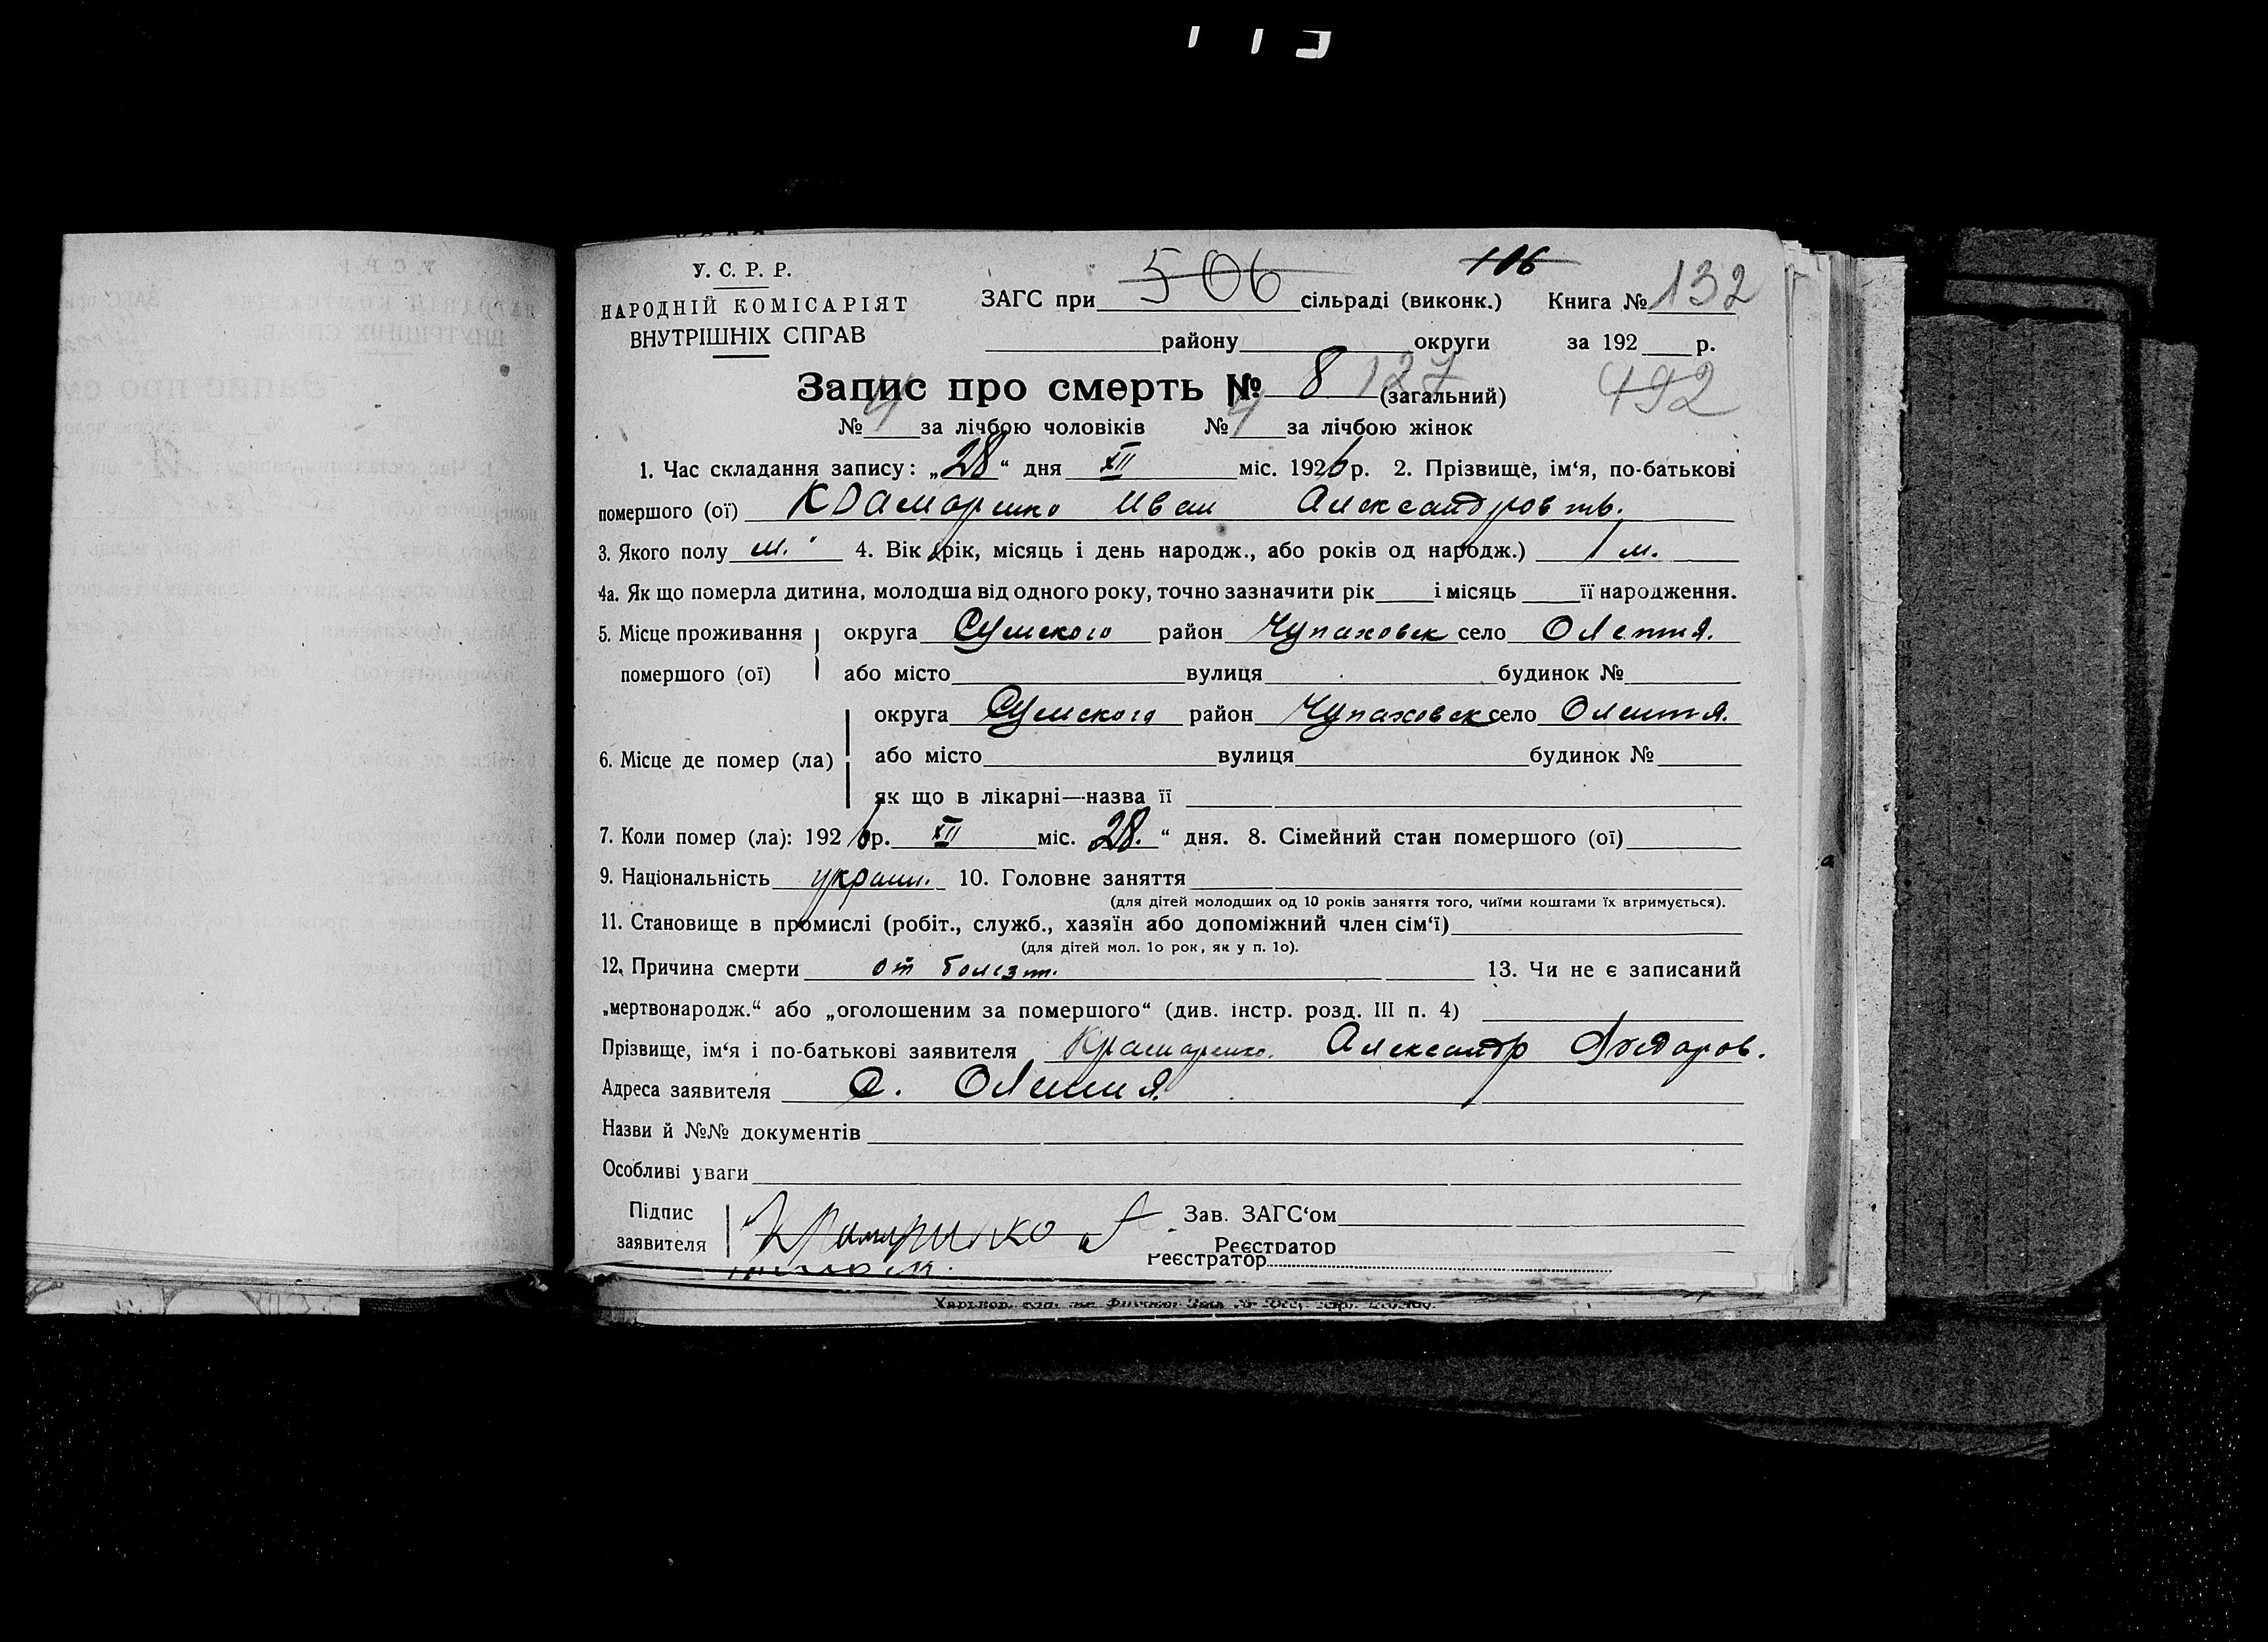 У. С. Р. Р.
НАРОДНІЙ КОМІСАРІЯТ
ВНУТРІШНІХ СПРАВ
506 106 132
ЗАГС при сільраді (виконк.) Книга №
району округи за 192 р.
Запис про смерть № 8 127 (загальний) 492
№ 4 за лічбою чоловіків № 4 за лічбою жінок
1. Час складання запису: „28“ дня XII міс. 1926 р. 2. Прізвище, ім‘я, по-батькові
помершого (ої) Крамаренко Иван Александров
3. Якого полу м. 4. Вік (рік, місяць і день народж., або років од народж.) 1 м.
4а. Як що померла дитина, молодша від одного року, точно зазначити рік і місяць її народження.
5. Місце проживання округа Сумского район Чупаховск село Олешня.
помершого (ої) або місто вулиця будинок №
округа Сумского район Чупаховск село Олешня.
6. Місце де помер (ла) або місто вулиця будинок №
як що в лікарні—назва її
7. Коли помер (ла): 1926 р. XII міс. 28. “ дня. 8. Сімейний стан помершого (ої)
9. Національність украин. 10. Головне заняття
(для дітей молодших од 10 років заняття того, чиїми коштами їх втримується).
11. Становище в промислі (робіт., служб., хазяїн або допоміжний член сім‘ї)
(для дітей мол. 1о рок, як у п. 1о).
12. Причина смерти от болезн. 13. Чи не є записаний
„мертвонародж.“ або „оголошеним за помершого“ (див. інстр. розд. III п. 4)
Прізвище, ім‘я і по-батькові заявителя Крамаренко Александр Федоров.
Адреса заявителя С. Олешня
Назви й №№ документів
Особливі уваги
Підпис Зав. ЗАГС‘ом
заявителя Реєстратор
Реєстратор